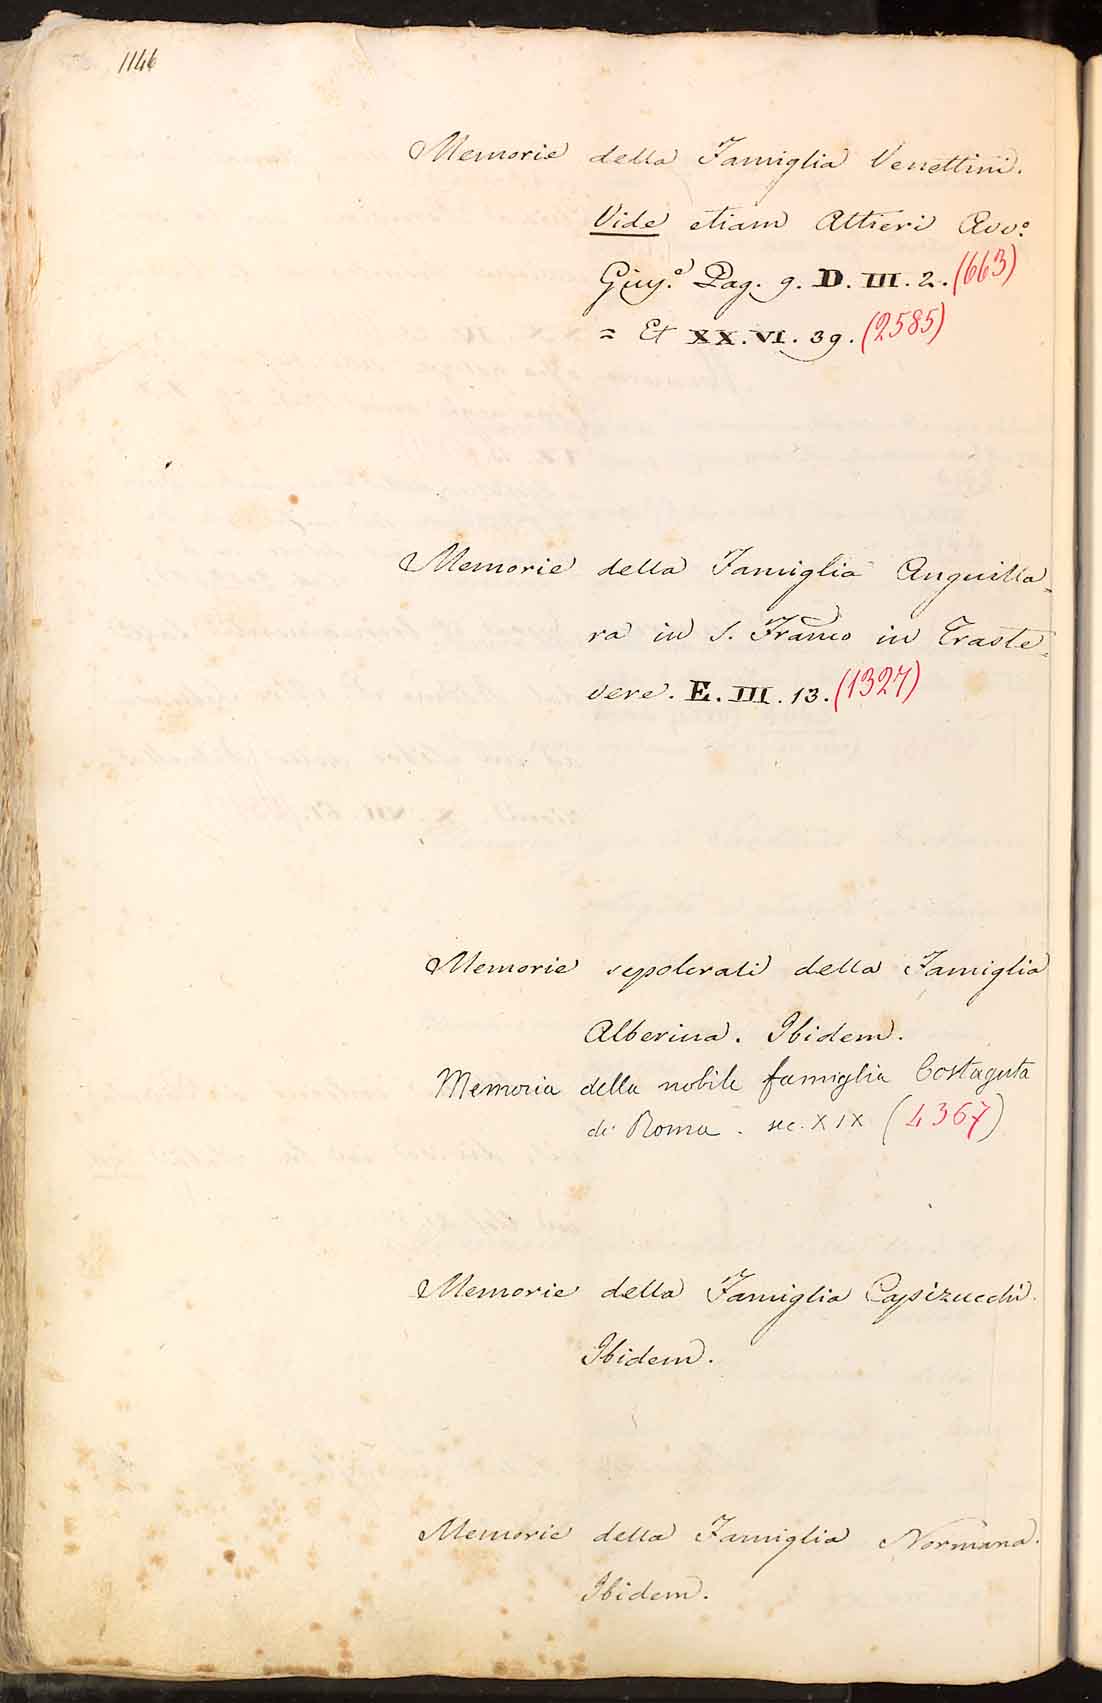 1146
Memorie della Famiglia Venettini.
Vide etiam Altieri Avv.o
Giu.e Pag. 9. D. III. 2. (663)
= Et XX. VI. 39. (2585)
Memorie della Famiglia Anguilla=
ra in S. Franco in Traste=
vere. E. III. 13. (1327)
Memorie sepolcrali della Famiglia
Alberina. Ibidem.
Memoria della nobile famiglia Costaguta
di Roma. sec. XIX (4367)
Memorie della Famiglia Capizucchi.
Ibidem.
Memorie della Famiglia Normana.
Ibidem.